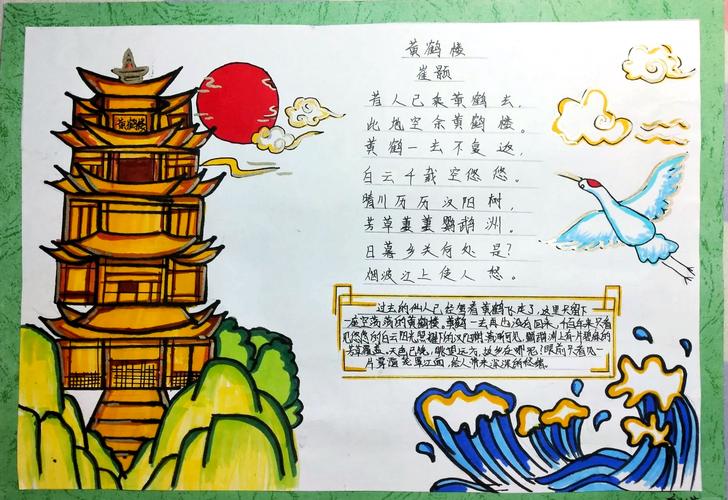 黄鹤楼
崔颢
昔人已乘黄鹤去，
此地空余黄鹤楼。
黄鹤一去不复返，
白云千载空悠悠。
晴川历历汉阳树，
芳草萋萋鹦鹉洲。
日暮乡关何处是？
烟波江上使人愁。
黄鹤楼
过去的仙人已经驾着黄鹤飞走了，这里只留下
一座空荡荡的黄鹤楼。黄鹤一去再也没有回来，千百年来只看
见悠悠的白云。阳光照耀下的汉阳树清晰可见，鹦鹉洲上有一片碧绿的
芳草覆盖。天色已晚，眺望远方，故乡在哪儿呢？眼前只看见一
片雾霭笼罩江面，给人带来深深的愁绪。